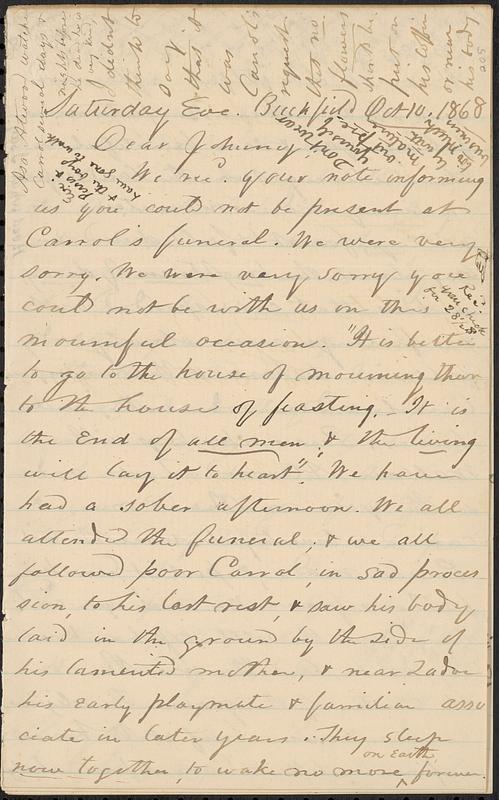 Saturday Eve. Buckfield Oct 10, 1868
Dear Johnny,
We rec'd your note informing
us you could not be present at
Carrol's funeral. We were very
sorry. We were very sorry you
could not be with us on this
mournful occasion. "It is better
to go to the house of mourning than
to the house of feasting. It is
the end of all men & the living
will lay it to heart". We have
had a sober afternoon. We all
attended the funeral, & we all
followed poor Carrol, in sad proces
sion, to his last rest, & saw his body
laid in the ground by the side of
his lamented mother, & near Zadoc
his early playmate & familiar asso
ciate in later years. They sleep
on Earth
now together, to wake no more forever.
Asa Atwood watched
Carrol several days &
nights before
he died
I didn't
think to
say
that it
was
Carrol's
request
that no
flowers
should be
put on
his coffin
or near
his body.
205
Don't worry
yourself
Rec'd
your check
for 28.28
& the boys
have gone to walk